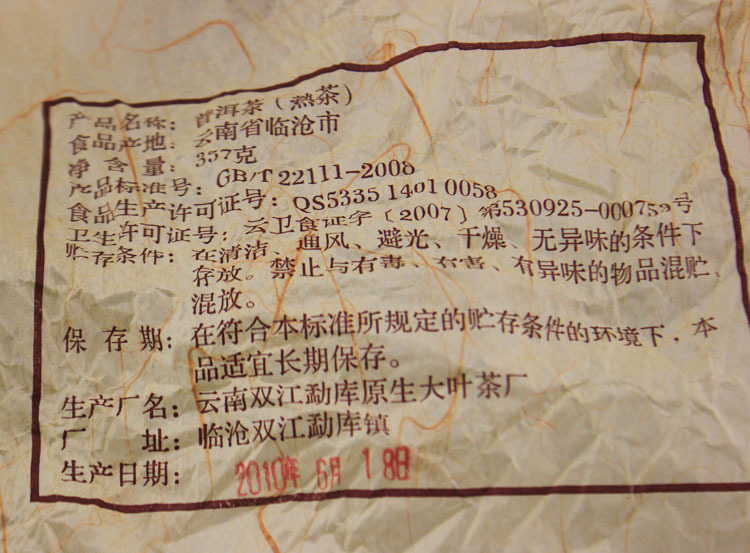 产品名称：普洱茶（熟茶）
食品产地：云南省临沧市
净含量：357克
产品标准号：GB/T 22111-2008
食品生产许可证号：QS5335 1401 0058
卫生许可证号：云卫食证字（2007）第530925-000759号
贮存条件：在清洁、通风、避光、干燥、无异味的条件下
存放。禁止与有毒、有害、有异味的物品混贮、
混放。
保存期：在符合本标准所规定的贮存条件的环境下，本
品适宜长期保存。
生产厂名：云南双江勐库原生大叶茶厂
厂址：临沧双江勐库镇
生产日期：2010年 6月 18日